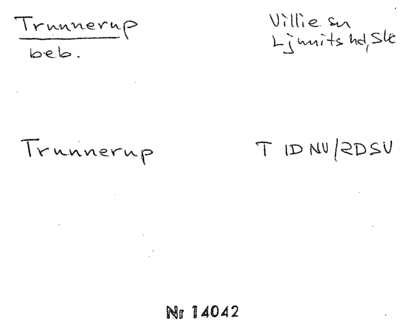 Trunnerup
Villie sn
beb.
Ljunits hd, Sk
Trunnerup
T 1D NV/2D SV
Nr 14042